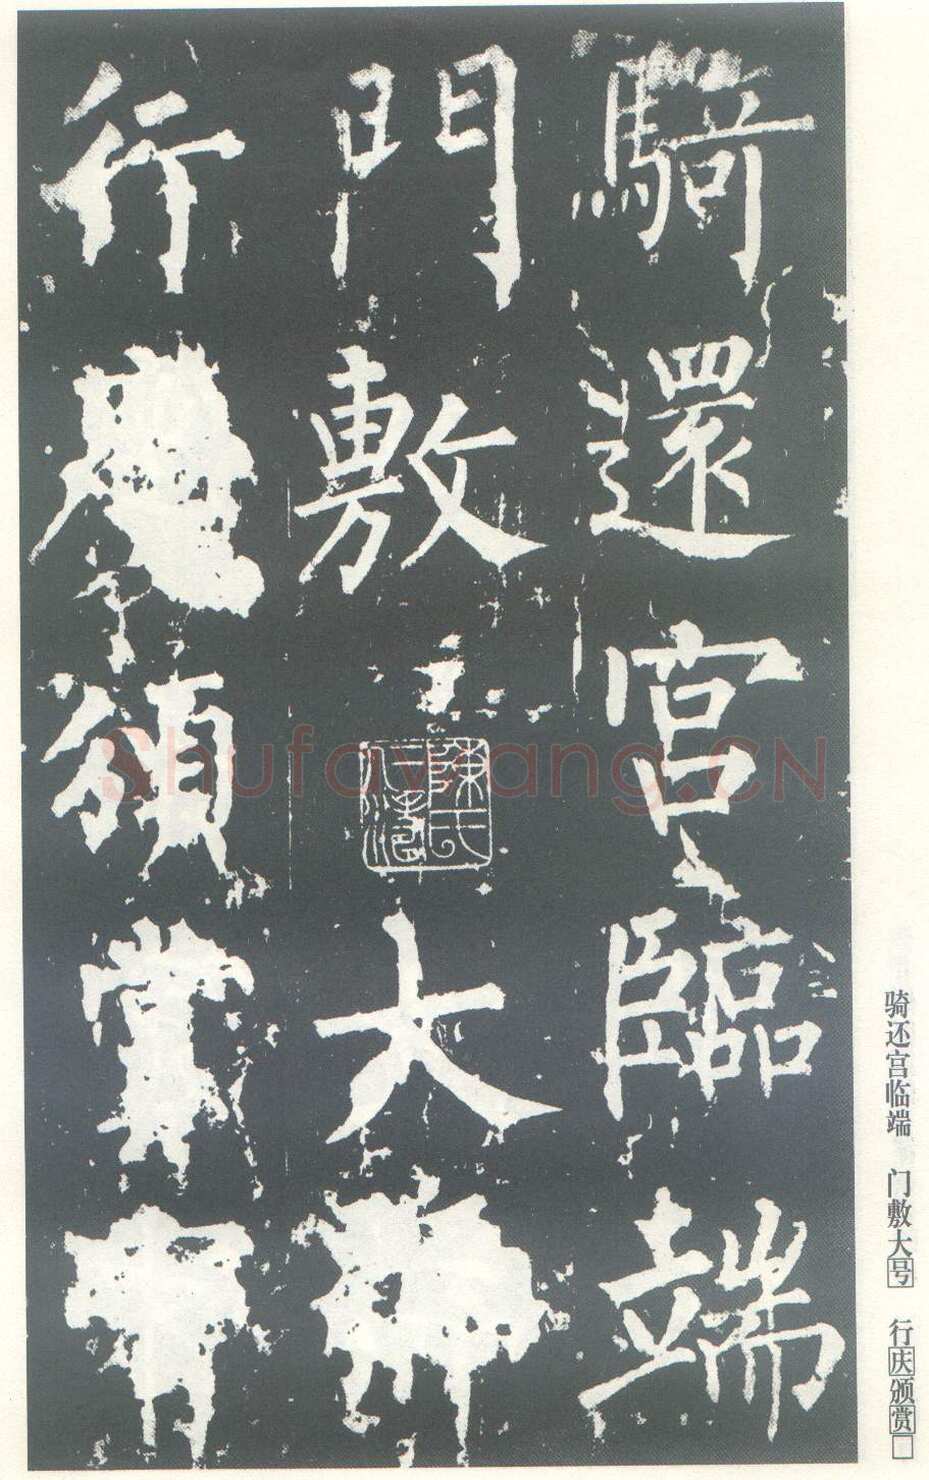 騎還宮臨端
門敷大
行慶頒賞
陳氏
Shufawang.CN
骑还宫临端 门敷大号 行庆颁赏□